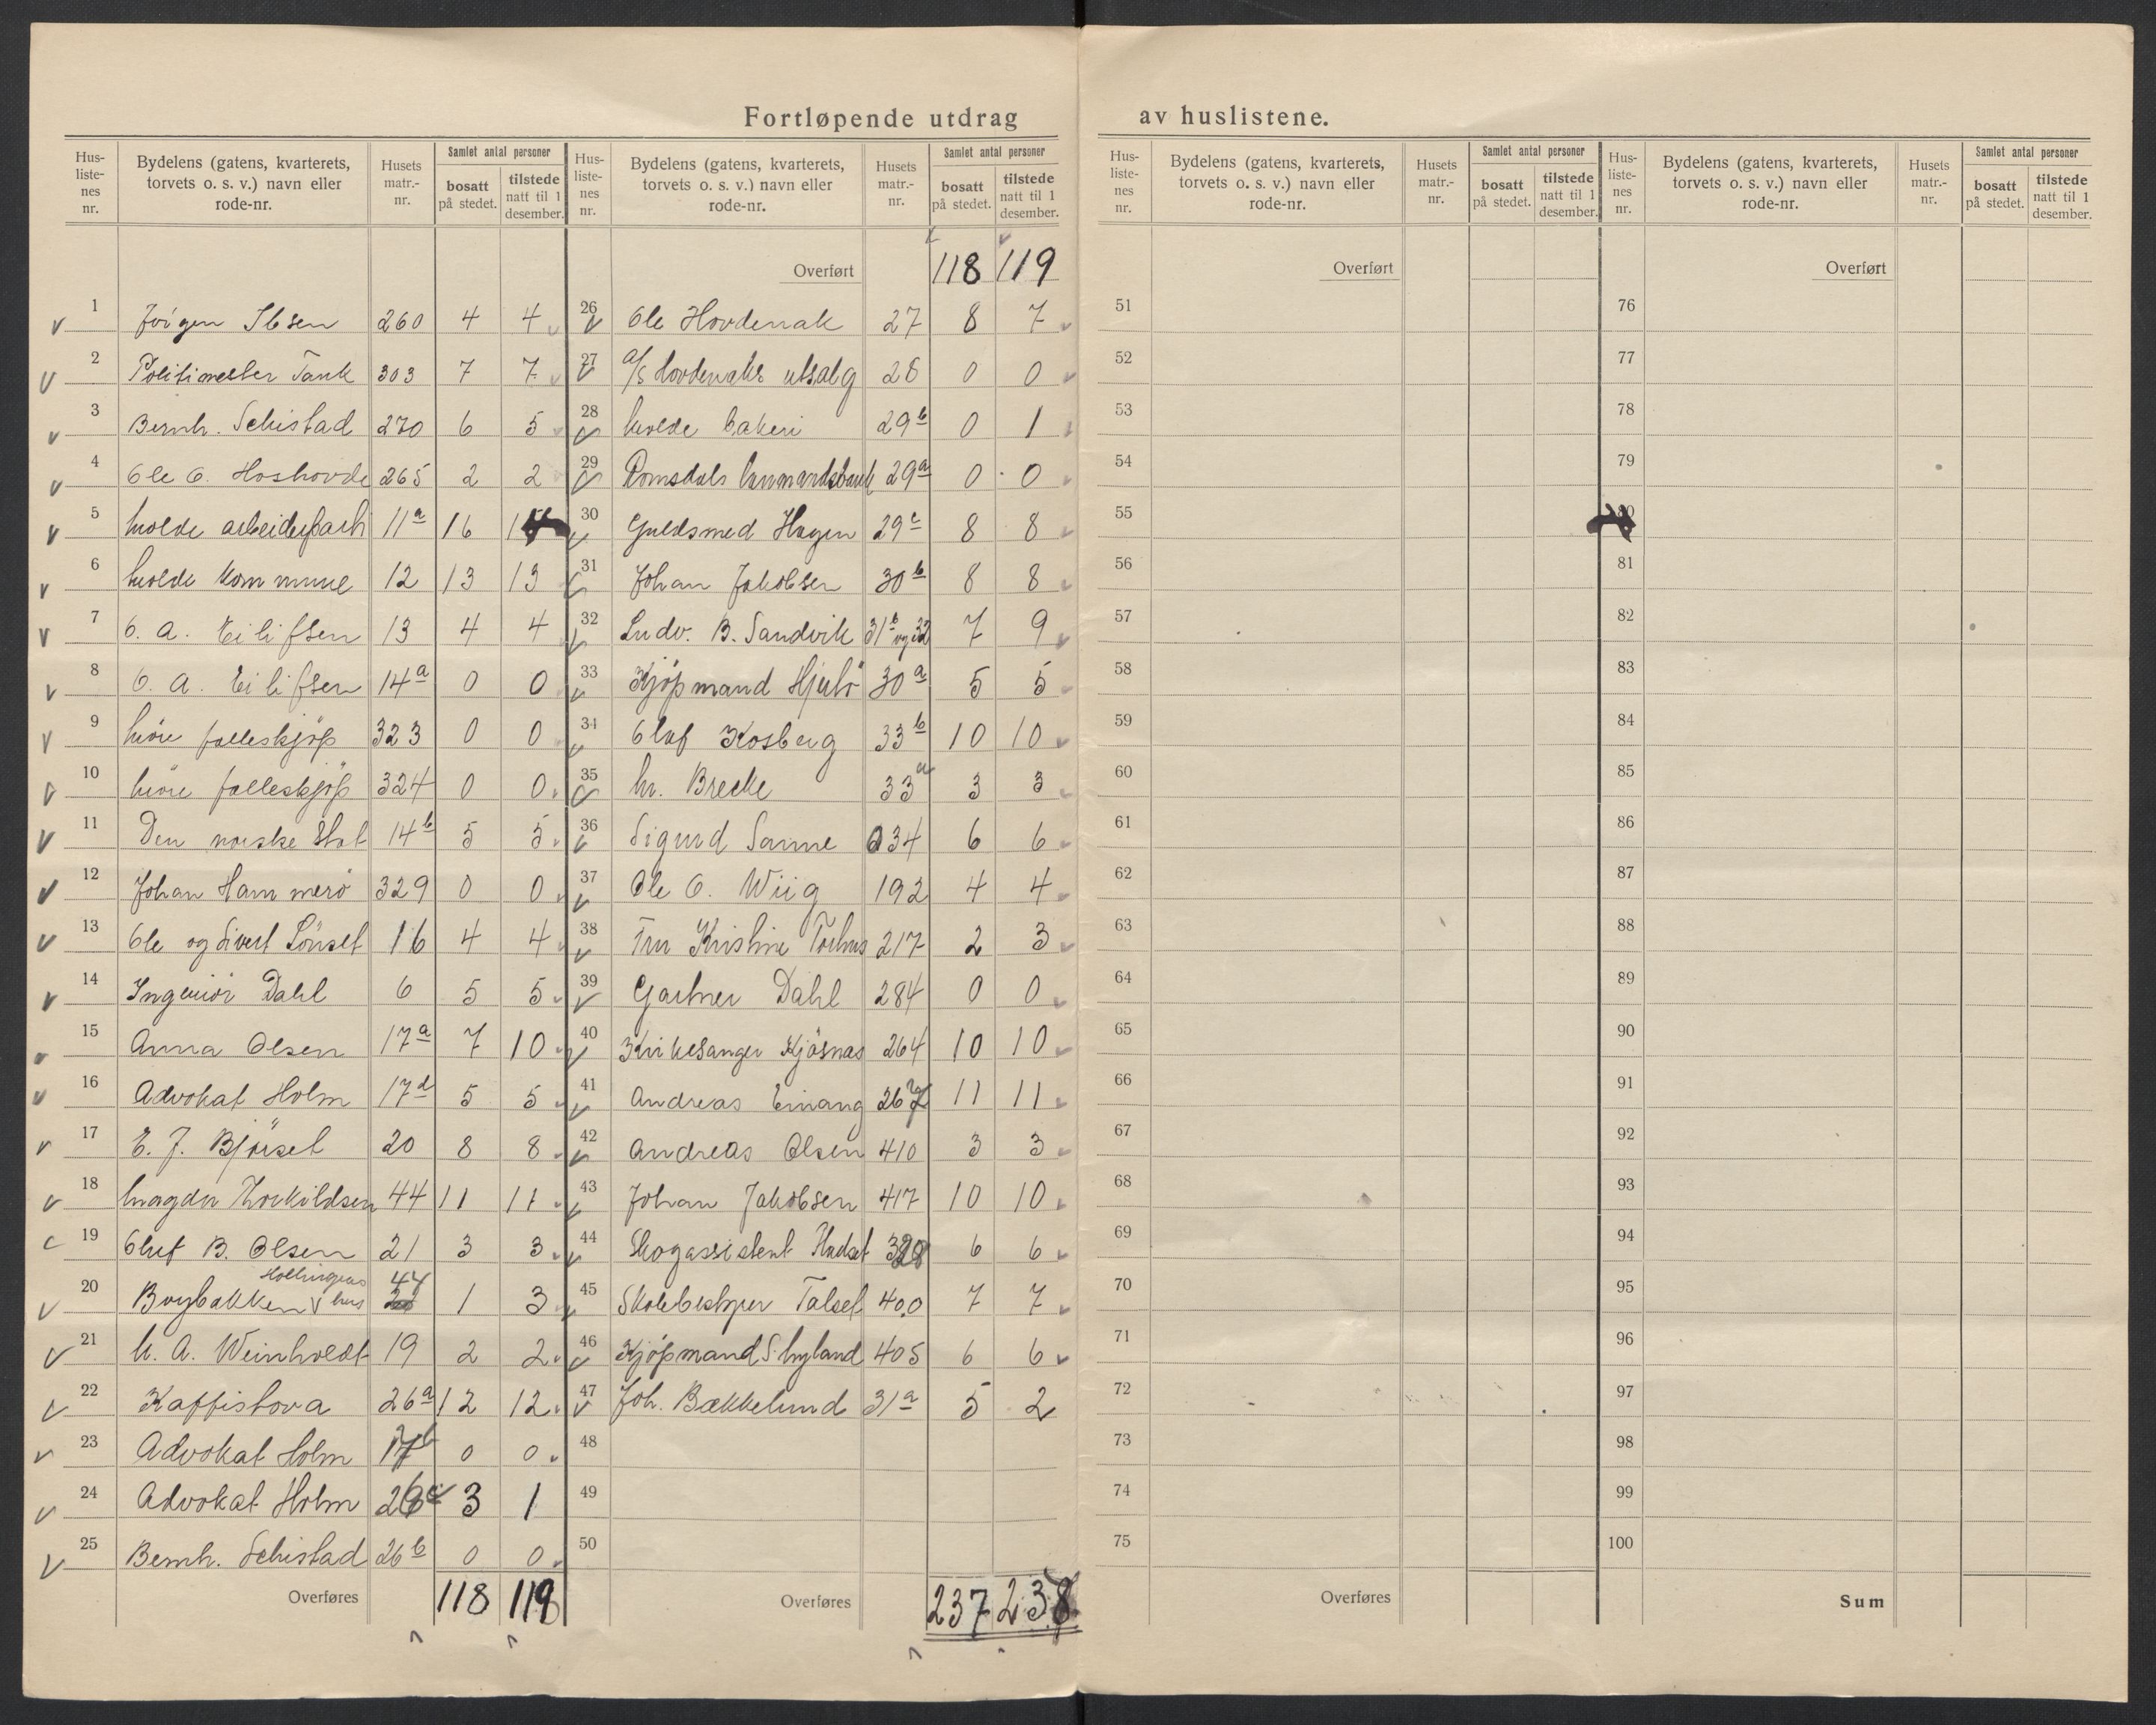 Fortløpende utdrag av huslistene.
Hus-listenes nr. | Bydelens (gatens, kvarterets, torvets o. s. v.) navn eller rode-nr. | Husets matr.-nr. | Samlet antal personer bosatt på stedet. | tilstede natt til 1 desember.
1 Jörgen Ibsen 260 4 4
2 Politimester Tank 303 7 7
3 Bernh. Schistad 270 6 5
4 Ole O. Hoshovde 265 2 2
5 Molde arbeiderparti 11a 16
6 Molde kommune 12 13 13
7 O. A. Eilifsen 13 4 4
8 O. A. Eilifsen 14a 0 0
9 Möre felleskjöp 323 0 0
10 Möre felleskjöp 324 0 0
11 Den norske Stat 14b 5 5
12 Johan Hammerö 329 0 0
13 Ole og Sivert Lönset 16 4 4
14 Ingeniör Dahl 6 5 5
15 Anna Olsen 17a 7 10
16 Advokat Holm 17d 5 5
17 E. J. Björset 20 8 8
18 Magda Thorkildsen 44 11 11
19 Oluf B. Olsen 21 3 3
20 hus 44 1 3
21 M. A. Weinholdt 19 2 2
22 Kaffistova 26a 12 12
23 Advokat Holm 0 0
24 Advokat Holm 3 1
25 Bernh. Schistad 26b 0 0
Overføres 118 119
Hus-listenes nr. | Bydelens (gatens, kvarterets, torvets o. s. v.) navn eller rode-nr. | Husets matr.-nr. | Samlet antal personer bosatt på stedet. | tilstede natt til 1 desember.
Overført 118 119
26 Ole Hovdenak 27 8 7
27 A/S Hovdenaks utsalg 28 0 0
28 Molde bakeri 29b 0 1
29 Romsdals lanmandsbank 29a 0 0
30 Guldsmed Hagen 29c 8 8
31 Johan Jakobsen 30b 8 8
32 Ludv. B. Sandvik 31b og 32 7 9
33 Kjöpmand Hjelö 30a 5 5
34 Oluf Kosberg 33b 10 10
35 M. Brekke 33a 3 3
36 Sigurd Sanne 34 6 6
37 Ole O. Wiig 192 4 4
38 Fru Kristine Torhus 217 2 3
39 Gartner Dahl 284 0 0
40 Kirkesanger Kjösnas 264 10 10
41 Andreas Einang 267 11 11
42 Andreas Olsen 410 3 3
43 Johan Jakobsen 417 10 10
44 Skogassistent 6 6
45 Skolebestyrer Talset 400 7 7
46 Kjöpmand S. Myland 405 6 6
47 Joh. Bækkelund 31a 5 2
48
49
50
Overføres 237 238
Hus-listenes nr. | Bydelens (gatens, kvarterets, torvets o. s. v.) navn eller rode-nr. | Husets matr.-nr. | Samlet antal personer bosatt på stedet. | tilstede natt til 1 desember.
Overført
51
52
53
54
55
56
57
58
59
60
61
62
63
64
65
66
67
68
69
70
71
72
73
74
75
Overføres
Hus-listenes nr. | Bydelens (gatens, kvarterets, torvets o. s. v.) navn eller rode-nr. | Husets matr.-nr. | Samlet antal personer bosatt på stedet. | tilstede natt til 1 desember.
Overført
76
77
78
79
80
81
82
83
84
85
86
87
88
89
90
91
92
93
94
95
96
97
98
99
100
Sum